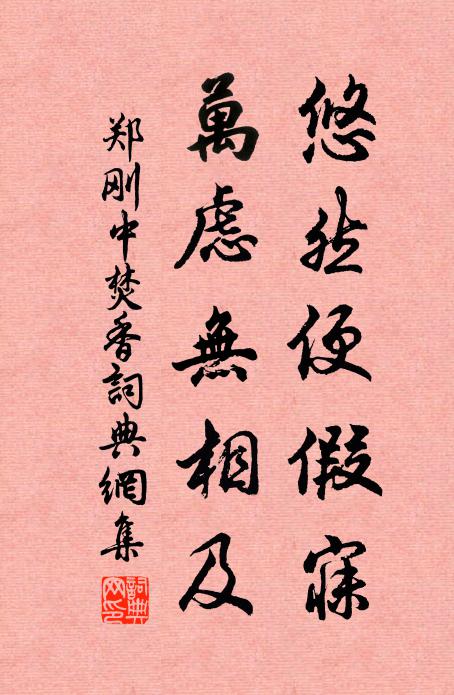 悠然便假寐
萬慮無相及
郑刚中焚香詞典網集
詞典网印